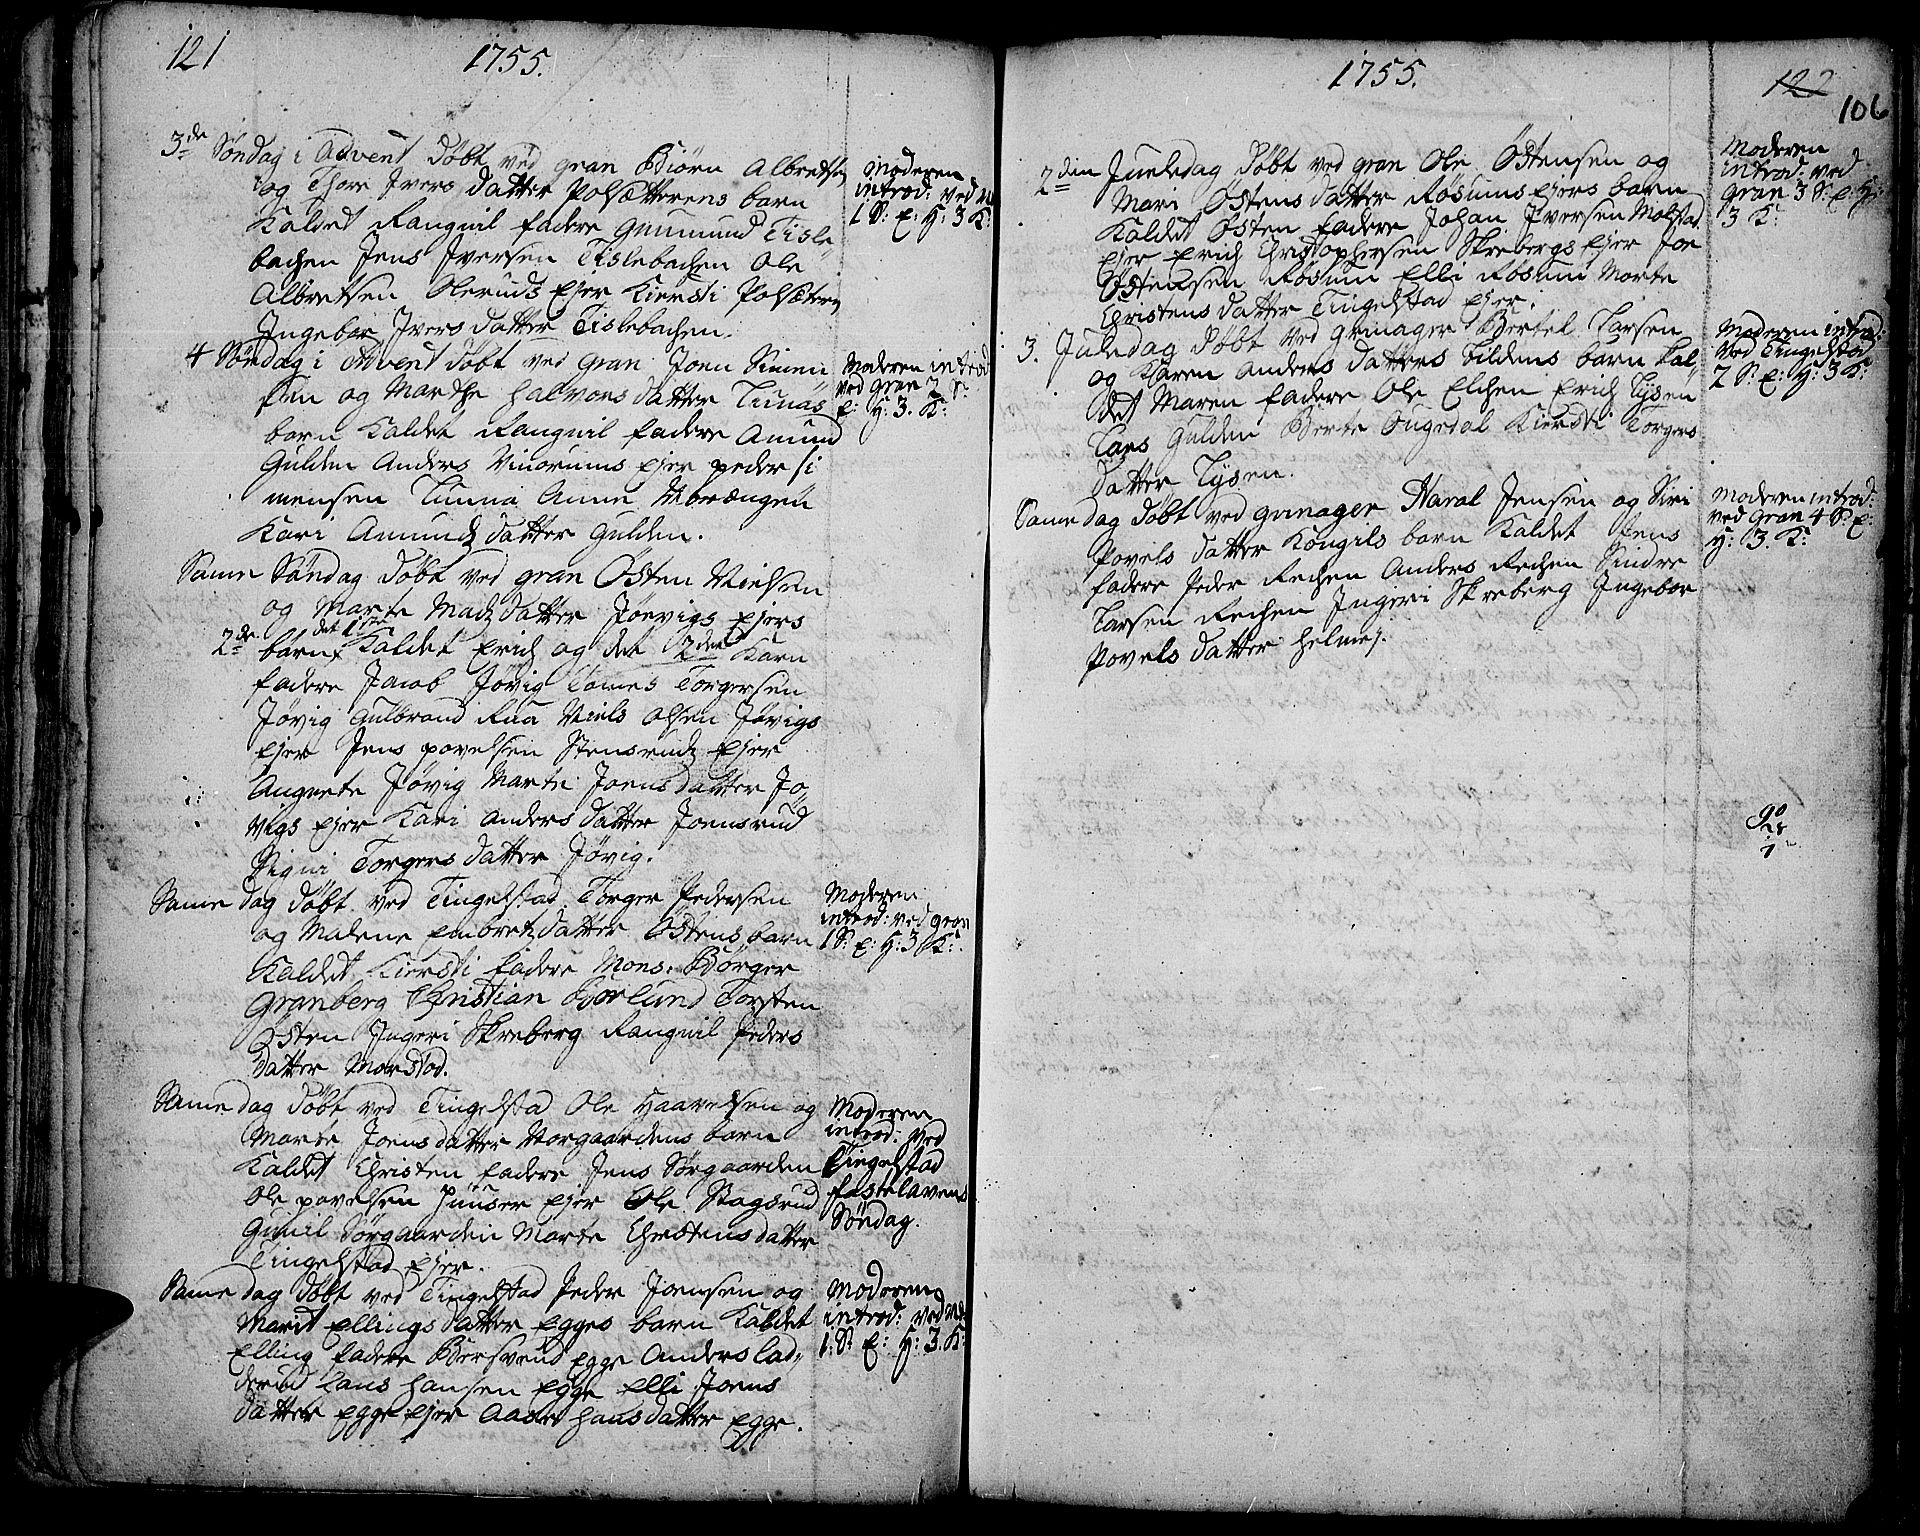 121
1755.
3de Søndag i Advent døbt ved gran Biørn Albretsen
og Thore Ivers datter Polsæterens barn
kaldet Ranguil fadere Gummund Tisle
bachen Jens Iversen Tislebachen Ole
Albretsen Oleruds Ejer Kiersti Polsæteren
Ingebor Ivers datter Tislebachen.
Moderen
introd: ved
1 S: E: H: 3 K:
4 Søndag i Advent døbt ved gran Joen Simen
sen og Marthe Halvors datter Tunas
barn kaldet Ranguil fadere Amund
Gulden Anders Vinorums Ejer peder Si
mensen Tunna Anne Vbrængen
Kari Amundz datter Gulden.
Moderen introd
ved gran 2 S:
E: H: 3. K:
Same Søndag døbt ved gran Østen Nielsen
og Marte Madz datter Jøevigs Ejers
2de børn det 1ste kaldet Erich og det 2det Karn
fadere Jacob Jøvig Tomes Torgersen
Jøvig Gulbrand Rua Niels Olsen Jøvigs
Ejer Jens povelsen Stensrudz Ejer
Angnete Jøvig Marte Joens datter Jø
vigs Ejer Kari Anders datter Joensrud
Signi Torgers datter Jøvig.
Same dag døbt ved Tingelstad Torger Pedersen
og Malene Embretz datter Østens barn
kaldet Kiersti fadere Mons: Børger
Granberg Christian Borlund Torsten
Østen Ingeri Skreberg Ranguil Peders
datter Morstad.
Moderen
introd: ved gran
1 S: E: H: 3 K:
Same dag døbt ved Tingelstad Ole Haavelsen og
Marte Joens datter Norgaardens barn
kaldet Christen fadere Jens Sørgaarden
Ole povelsen Huuser Ejer Ole Stagsrud
Gunil Sørgaarden Marte Christens datter
Tingelstad Ejer.
Moderen
introd: ved
Tingelstad
fastelavens
Søndag.
Same dag døbt ved Tingelstad Peder Joensen og
Marit Ellings datter Egges barn kaldet
Elling fadere Bersvend Egge Anders Lad
derud Lars Hansen Egge Elli Joens
datter Egge Ejer Aase Hans datter Egge.
Moderen
introd: ved
1. S. E: H: 3. K:
1755.
122
106
2den Jueledag døbt ved gran Ole Østensen og
Mari Østens datter Røsums Ejers barn
kaldet Østen fadere Johan Iversen Molstad
Ejer Erich Christophersen Skrebergs Ejer Joe
Østensen Røsum Elli Røsum Marte
Christens datter Tingelstad Ejer.
Moderen
introd: ved
gran 3 S: E: H:
3 K:
3. Juledag døbt ved Grinager Bertel Larsen
og Karen Anders datters Tildens barn kal
det Maren fadere Ole Elchen Erich Lysen
Lars Gulden Berte Kiersti Torgers
datter Lysen.
Moderen introd:
ved Tingelstad
2 S: E: H: 3 K:
Same dag døbt ved grinager Haral Jensen og Siri
Povels datter Kongils barn kaldet Jens
fadere Peder Rechen Anders Rechen Sindre
Larsen Rechen Ingeri Skreberg Ingebor
Povels datter Helmej.
Moderen introd:
ved gran 4 S: E:
H: 3. K:
90